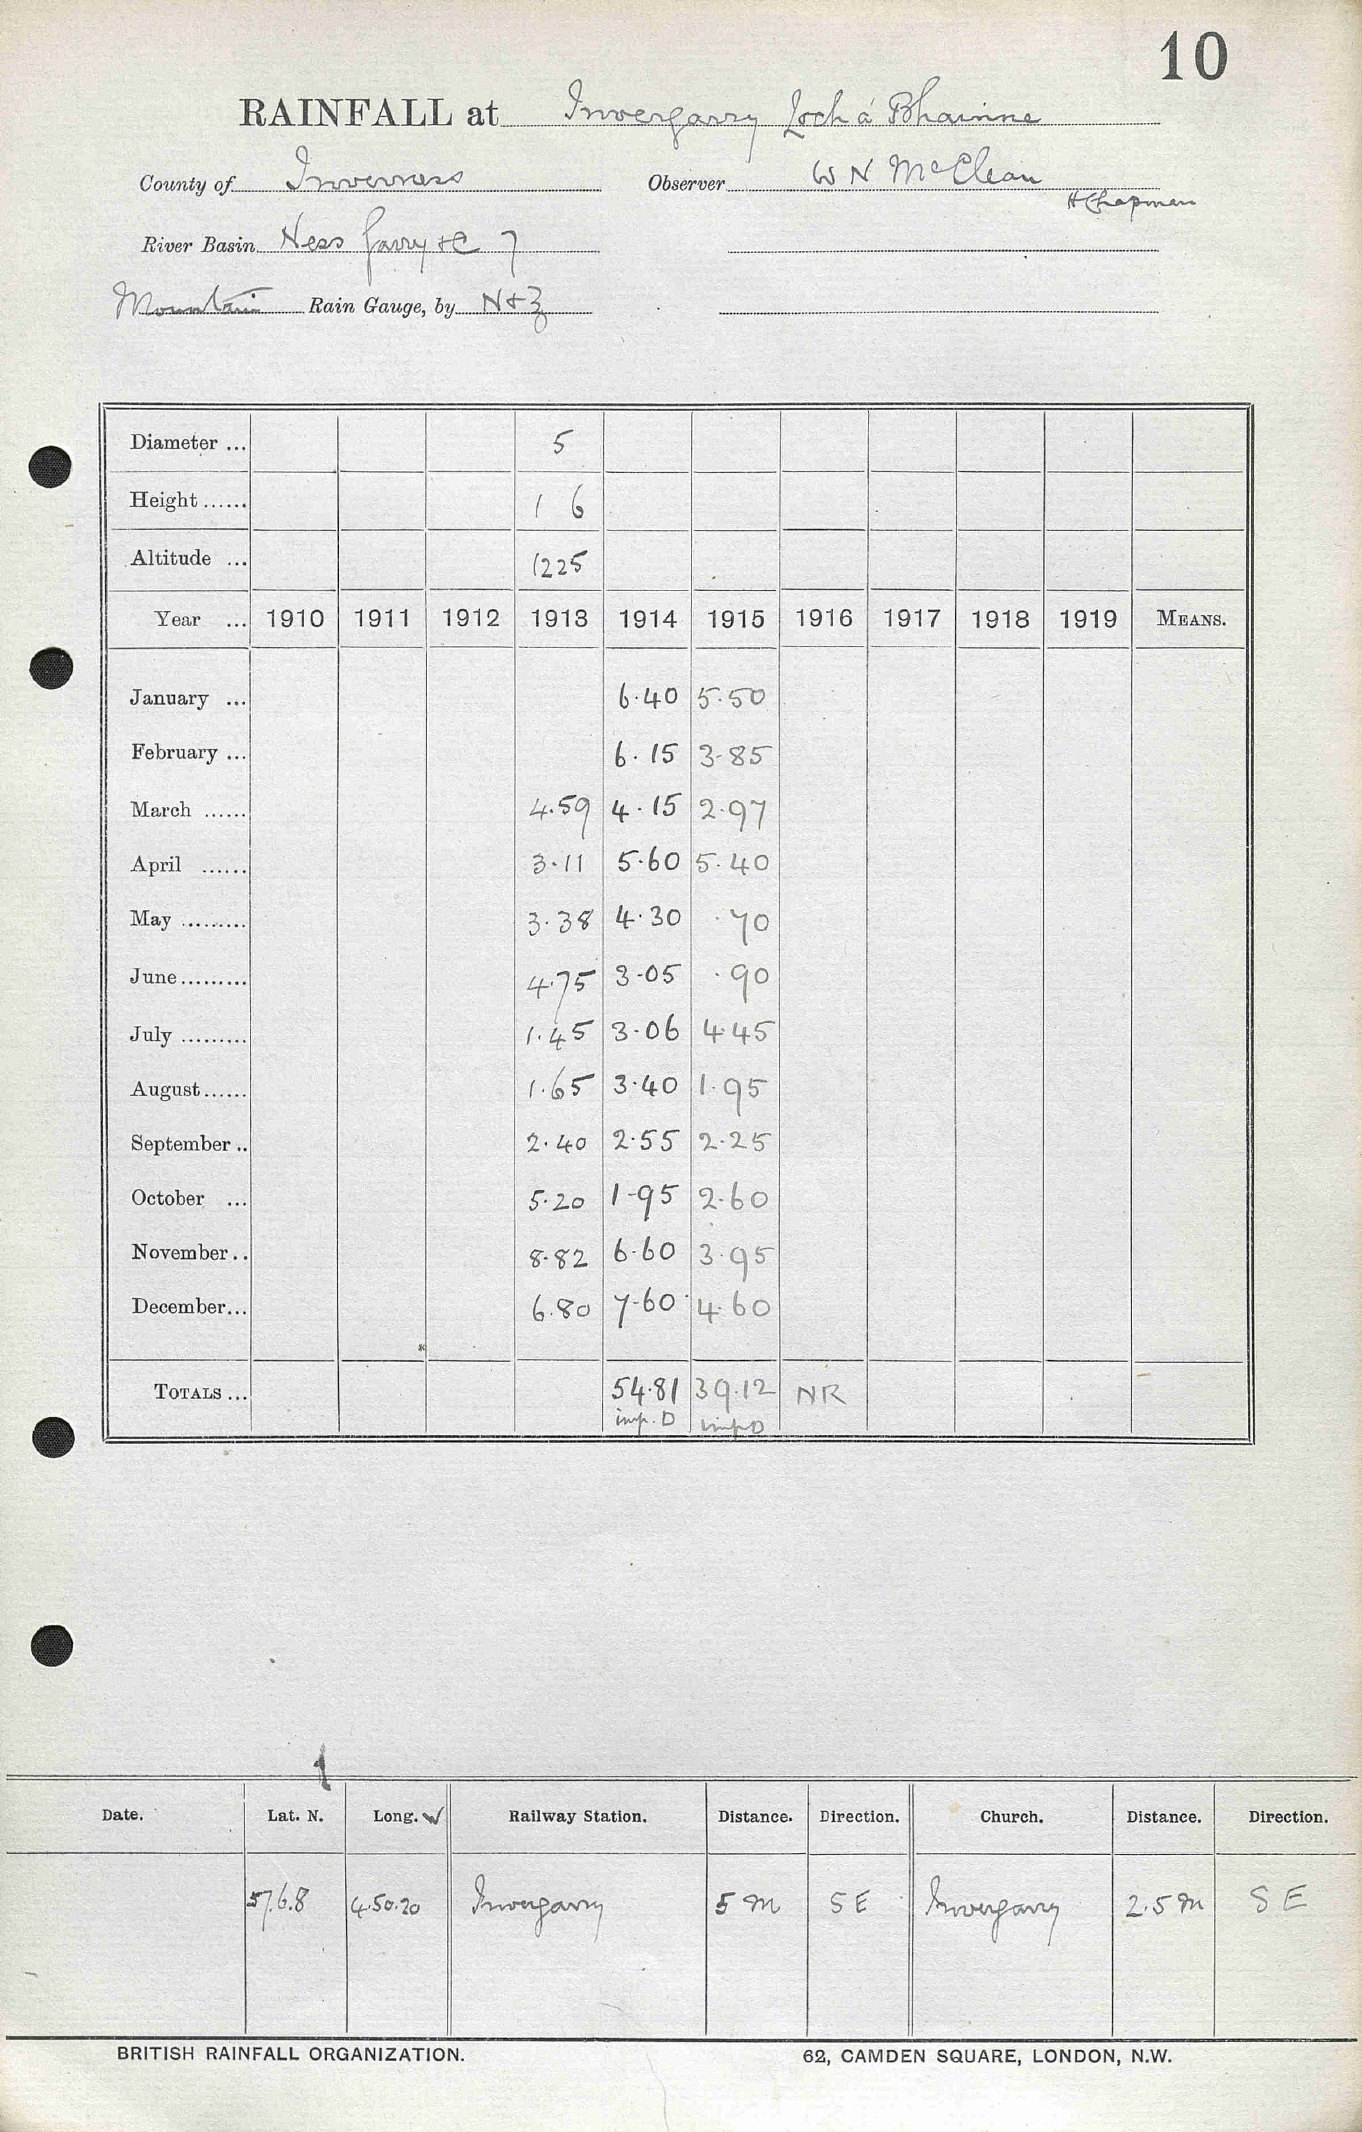 10
RAINFALL at Invergarry Loch á Bhainne
County of Inverness Observer W N McClean
H Chapman
River Basin Ness Garry &c 7
Mountain Rain Gauge, by N & Z
Diameter ... 5
Height ...... 1 6
Altitude ... 1225
Year ... 1910 1911 1912 1913 1914 1915 1916 1917 1918 1919 MEANS.
January ... 6.40 5.50
February ... 6.15 3.85
March ...... 4.59 4.15 2.97
April ...... 3.11 5.60 5.40
May ......... 3.38 4.30 .70
June ......... 4.75 3.05 .90
July ......... 1.45 3.06 4.45
August ...... 1.65 3.40 1.95
September .. 2.40 2.55 2.25
October ... 5.20 1.95 2.60
November .. 8.82 6.60 3.95
December ... 6.80 7.60 4.60
TOTALS ... 54.81 39.12 NR
imp. D imp D
Date. Lat. N. Long. W Railway Station. Distance. Direction. Church. Distance. Direction.
57.6.8 4.50.20 Invergarry 5 m S E Invergarry 2.5 m S E
BRITISH RAINFALL ORGANIZATION. 62, CAMDEN SQUARE, LONDON, N.W.